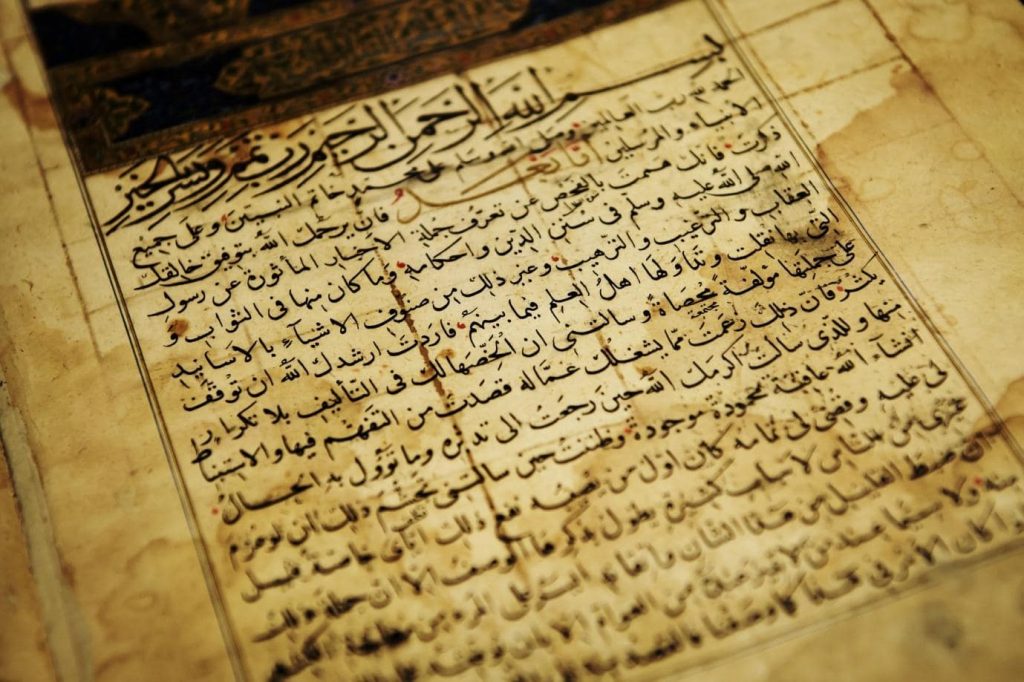 بسم الله الرحمن الرحيم رب تمم ويسر بالخير
الحمد لله رب العالمين وصلى الله وسلم على محمد خاتم النبيين وعلى جميع
الانبياء والمرسلين اما بعد فانك رحمك الله بتوفيق خالقك
ذكرت انك هممت بالفحص عن تعرف جملة الاخبار المأثورة عن رسول
الله صلى الله عليه وسلم في سنن الدين واحكامه وما كان منها في الثواب و
العقاب والترغيب والترهيب وغير ذلك من صنوف الاشياء بالاسانيد
التي بها نقلت وتداولها اهل العلم فيما بينهم فاردت ارشدك الله ان توقف
على جملتها مؤلفة محصاة وسالتني ان الخصها لك في التأليف بلا تكرار
يكثر فان ذلك زعمت مما يشغلك عما له قصدت من التفهم فيها والاستنباط
منها وللذي سالت اكرمك الله حين رجعت الى تدبره وما تؤول به الحال
انشاء الله عاقبة محمودة موجودة وظننت حين سالتني تجشم ذلك ان لو عزم
لي عليه وقضي لي تمامه كان اول من يصيبه نفع ذلك اياي خاصة قبل
غيري من الناس لاسباب كثيرة يطول بذكرها الوصف الا ان جملة ذلك
ان ضبط القليل من هذا الشان ايسر على المرء من معالجة الكثير
منه ولا سيما عند من لا تمييز من العوام الا بان
كان الامر في هذا كما وصفنا فالقصد